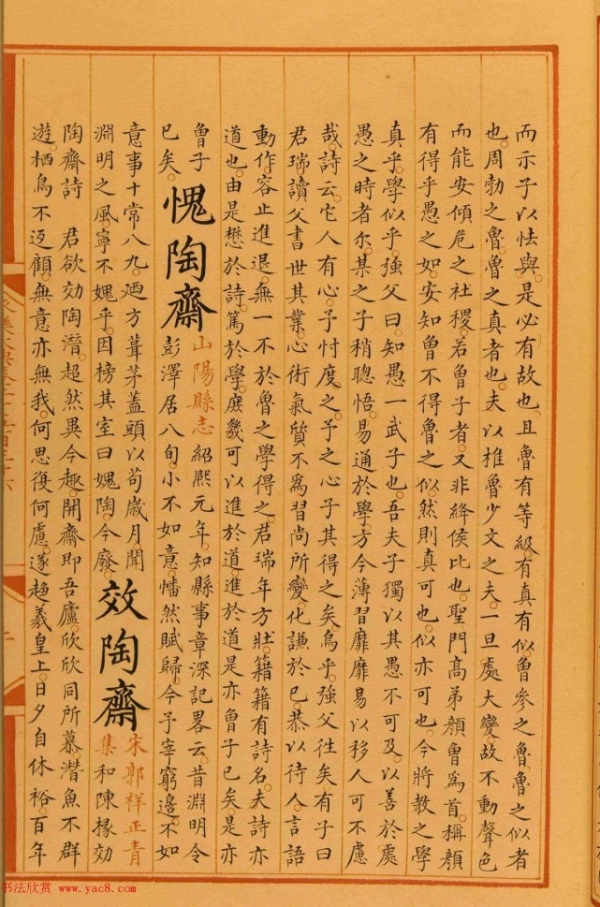 而示子以怯與是必有故也且魯有等級有真有似曾參之魯魯之似者
也周勃之魯魯之真者也夫以椎魯少文之夫一旦處大變故不動聲色
而能安傾危之社稷若魯子者又非絳侯比也聖門高弟顏曾為首稱顏
有得乎愚之如安知魯不得魯之似然則真可也似亦可也今將教之學
真乎學似乎強父曰知愚一武子也吾夫子獨以其愚不可及以善於處
愚之時者尔某之子稍聰悟易通於學方今薄習靡靡易以移人可不慮
哉詩云它人有心予忖度之予之心子其得之矣烏乎強父往矣有子曰
君瑞讀父書世其業心術氣質不為習尚所變化謙於已恭以待人言語
動作容止進退無一不於魯之學得之君瑞年方壯籍籍有詩名夫詩亦
道也由是懋於詩篤於學庶幾可以進於道進於道是亦魯子已矣是亦
魯子
已矣愧陶齋山陽縣志紹熙元年知縣事章深記畧云昔淵明令
彭澤居八旬小不如意幡然賦歸今予宰窮邊不如
意事十常八九廼方葺茅蓋頭以苟歲月聞
淵明之風寧不媿乎因榜其室曰媿陶今廢效陶齋宋郭祥正青
集和陳掾効
陶齋詩 君欲効陶潛超然異今趣開齋即吾廬欣欣同所慕潛魚不群
遊栖鳥不迓顧無意亦無我何思復何慮遂趍羲皇上日夕自休裕百年
书法欣赏 www.yac8.com